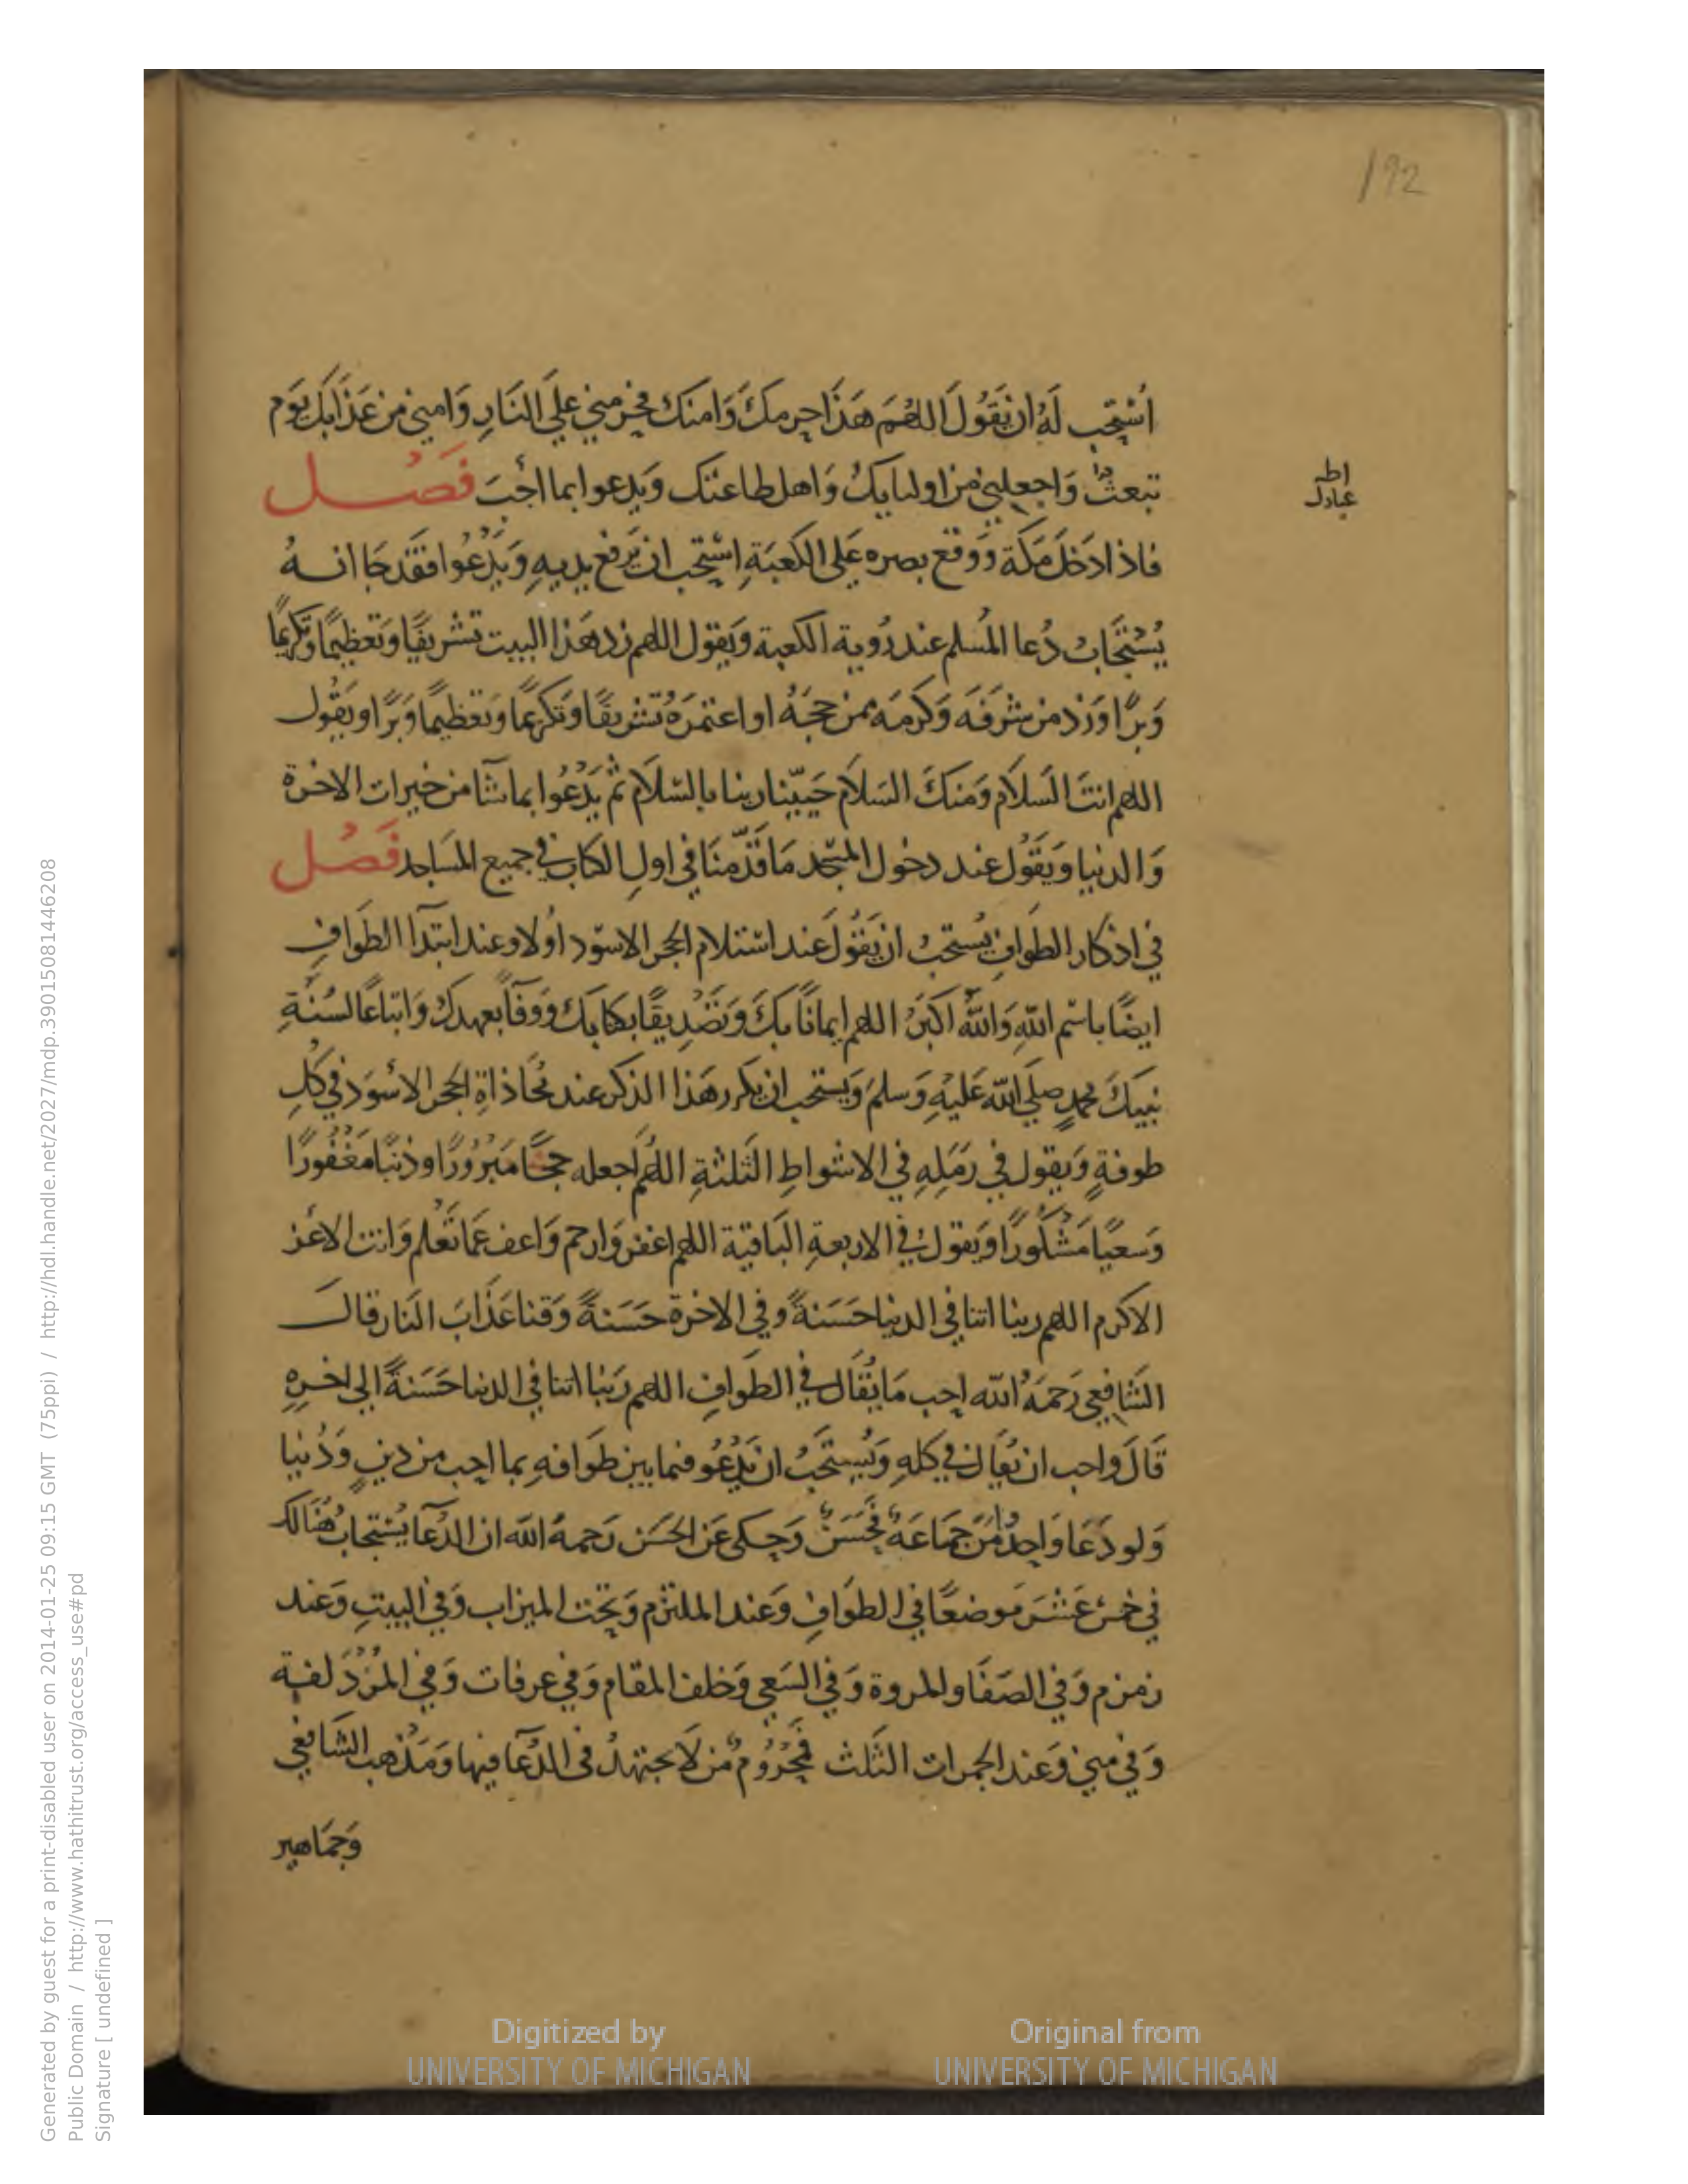 192
اسْتِحِب لَهُ ان يَقُولَ اللهُمَ هَذَا حرمكَ وَامنك فحرمني علَى النَارِ وَامني من عَذَابكَ يَوم
تبعثُ وَاجعلني من اوليايكَ وَاهل طاعتك وَيدعوا بما احَبَ فَصْل
فاذا دَخَلَ مَكَة وَوقع بصره عَلى الكعبَةِ استِحب ان يَرفع يديهِ وَيَدْعُوا فقَد جَا انهُ
يُسْتَجَابُ دُعا المُسلم عند رُوية الكعبة وَيقول اللهم زد هَذا البيت تشريفًا وَتعظيمًا وَتكريمًا
وَبرًّا وَزد من شرفَه وَكرمَه ممن حجَهُ او اعتمرَهُ تشريفًا وَتكريمًا وَتعظيمًا وَبرًا ويَقُول
اللهم انتَ السَلاَم وَمنكَ السَلاَم حَيّينا ربنا بالسَلاَم ثم يَدْعُوا بما شآ من خيرات الاخرة
وَالدنيا وَيَقُول عند دخول المسْجد مَا قَدّمنَا في اولِ الكتاب في جميع المسَاجد فَصْل
في اذكار الطَوافِ يُستحبُ ان يَقُولَ عند استلام الحجر الاسوَد اوُلا وعند ابتدآ الطَوافِ
ايضًا باسْم اللهِ وَاللهُ اكبَرُ اللهم ايمانًا بكَ وَتصْدِيقًا بكتابكَ وَوفآً بعهدكَ وَاتباعًا لسُنةِ
نبيكَ محمدٍ صلى الله عَليْهِ وَسلمَ وَيستحب ان يكرر هَذا الذكر عند مُحَاذاةِ الحجر الاسْوَد في كُلِ
طوفةٍ وَيقول في رَمَلِهِ في الاشواطِ الثَلثةِ اللهُم اجعله حجًا مَبْرُورًا وذنبًا مَغْفُورًا
وَسعيًا مَشْكُورًا وَيقول في الاربعةِ البَاقية اللهم اغفر وَارحم وَاعف عَمَا تَعْلم وَانت الاعَز
الاكرم اللهم ربنا اتنا في الدنيا حَسَنةً وفي الاخرة حَسَنةً وَقنا عَذَابَ النَار قالَ
الشَافعي رَحمَهُ الله احِب مَا يُقَال في الطَوافِ اللهم رَبنا اتنا في الدنيا حَسَنةً الى اخرِهِ
قَالَ واحب ان يُقَال في كلهِ وَيُستحَبُ ان يَدْعُو فيما بين طَوافهِ بما احِب من دينٍ وَدُنيا
وَلو دَعَا وَاحِدٌ من جمَاعَة فحَسَنٌ وَحكي عَن الحَسَن رَحمهُ الله ان الدعآ يُسْتجابُ هُنَالكَ
في خمسَ عَشرَ مَوضعًا في الطَوافِ وَعند الملتزم وَتحت الميزاب وَفي البيتِ وَعند
زمزم وَفي الصَفَا والمروة وَفي السَعي وَخلف المقام وَفي عرفات وَفي المُزْدَلفة
وَفي مني وَعند الجمرات الثَلث فَمحْرُومٌ من لاَ يجتهدُ في الدعآ فيها وَمَذهب الشَافعي
وَجمَاهير
Digitized by
UNIVERSITY OF MICHIGAN
Original from
UNIVERSITY OF MICHIGAN
Generated by guest for a print-disabled user on 2014-01-25 09:15 GMT (75ppi) / http://hdl.handle.net/2027/mdp.39015081446208
Public Domain / http://www.hathitrust.org/access_use#pd
Signature [ undefined ]